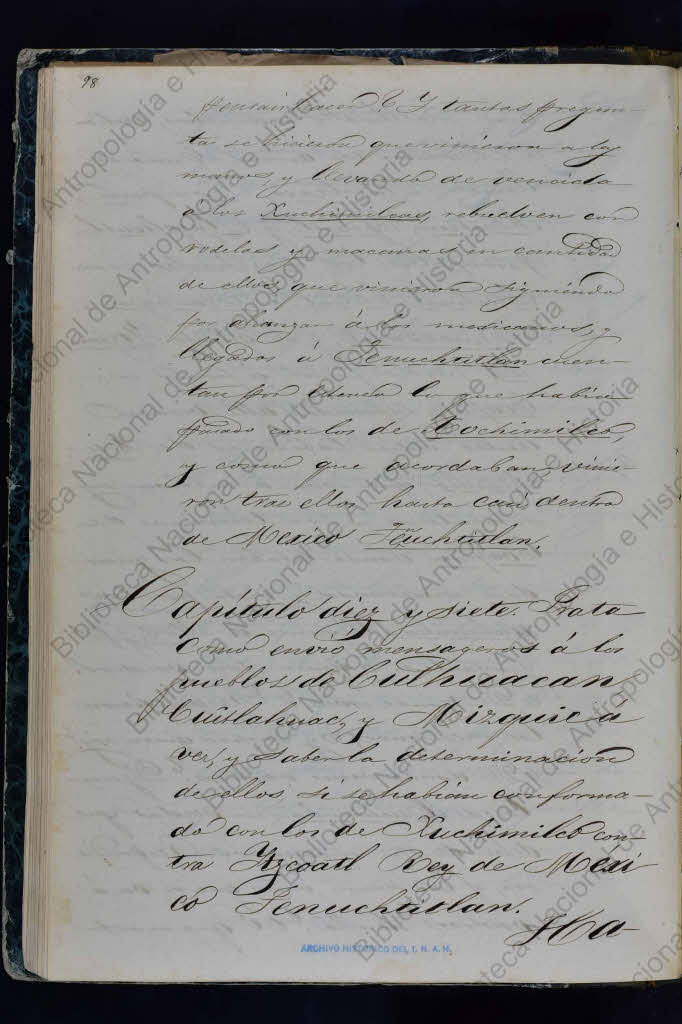 98
pensais hacer? Y tantas pregun-
tas se hicieron que vinieron a las
manos, y llevando de vencida
a los Xuchimilcas, rebuelven con
rodelas y macanas en cantidad
de ellos, que vinieron siguiendo
por alcanzar á los mexicanos, y
llegados á Tenuchtitlan cuen-
tan por estenso lo que habia
pasado con los de Xochimilco,
y como que acordaban, vinie-
ron tras ellos hasta casi dentro
de Mexico Teñuchtitlan.
Capítulo diez y siete. Trata
como envió mensageros á los
pueblos de Culhuacan
Cuitlahuac, y Mizquic á
ver, y saber la determinacion
de ellos, si se habian conforma-
do con los de Xuchimilco con-
tra Yzcoatl Rey de Mexi
co Tenuchtitlan.
Ha-
ARCHIVO HISTORICO DEL I. N. A. H.
Biblioteca Nacional de Antropología e Historia